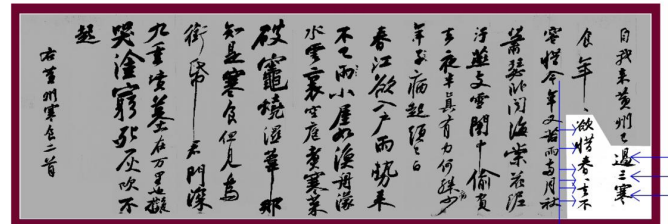 自我来黄州已過三寒
食年、欲惜春、去不
容惜今年又苦雨兩月秋
蕭瑟卧聞海棠花泥
汙燕支雪闇中偷負
去夜半真有力何殊少
年子病起頭已白
春江欲入户雨勢来
不已雨小屋如漁舟濛
水雲裏空庖煮寒菜
破竈燒濕葦那
知是寒食但見烏
銜帋君門深
九重墳墓在万里也擬
哭塗窮死灰吹不
起
右黄州寒食二首